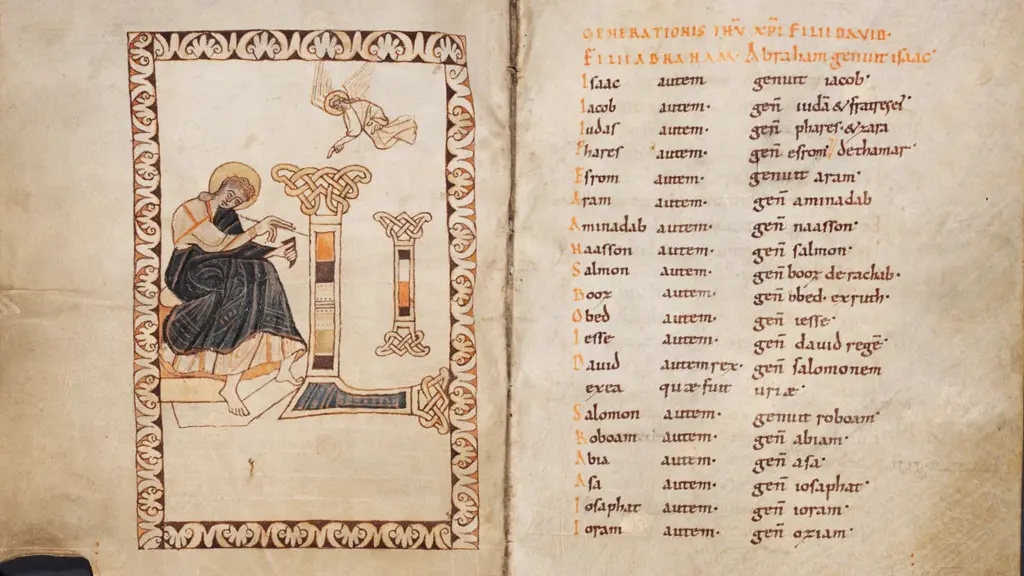 LI
GENERATIONIS IHV̄ XP̄I FILII DAVID·
FILII ABRAHAM· Abraham genuit isaac
Isaac autem genuit iacob·
Iacob autem· gen̄ iudā & fratres ei'
Iudas autem· gen̄ phares· & zara
Phares autem· gen̄ esrom dethamar·
Esrom autem· genuit aram·
Aram autem· gen̄ aminadab
Aminadab autem· gen̄ naasson·
Naasson autem· gen̄ salmon·
Salmon autem· gen̄ booz derachab·
Booz autem· gen̄ obed· exruth·
Obed autem· gen̄ iesse·
Iesse autem· gen̄ david regē·
David autem rex· gen̄ salomonem
exea quæ fuit uriæ·
Salomon autem· genuit roboam·
Roboam autem· gen̄ abiam·
Abia autem· gen̄ asa·
Asa autem· gen̄ iosaphat·
Iosaphat autem· gen̄ ioram·
Ioram autem· gen̄ oziam·